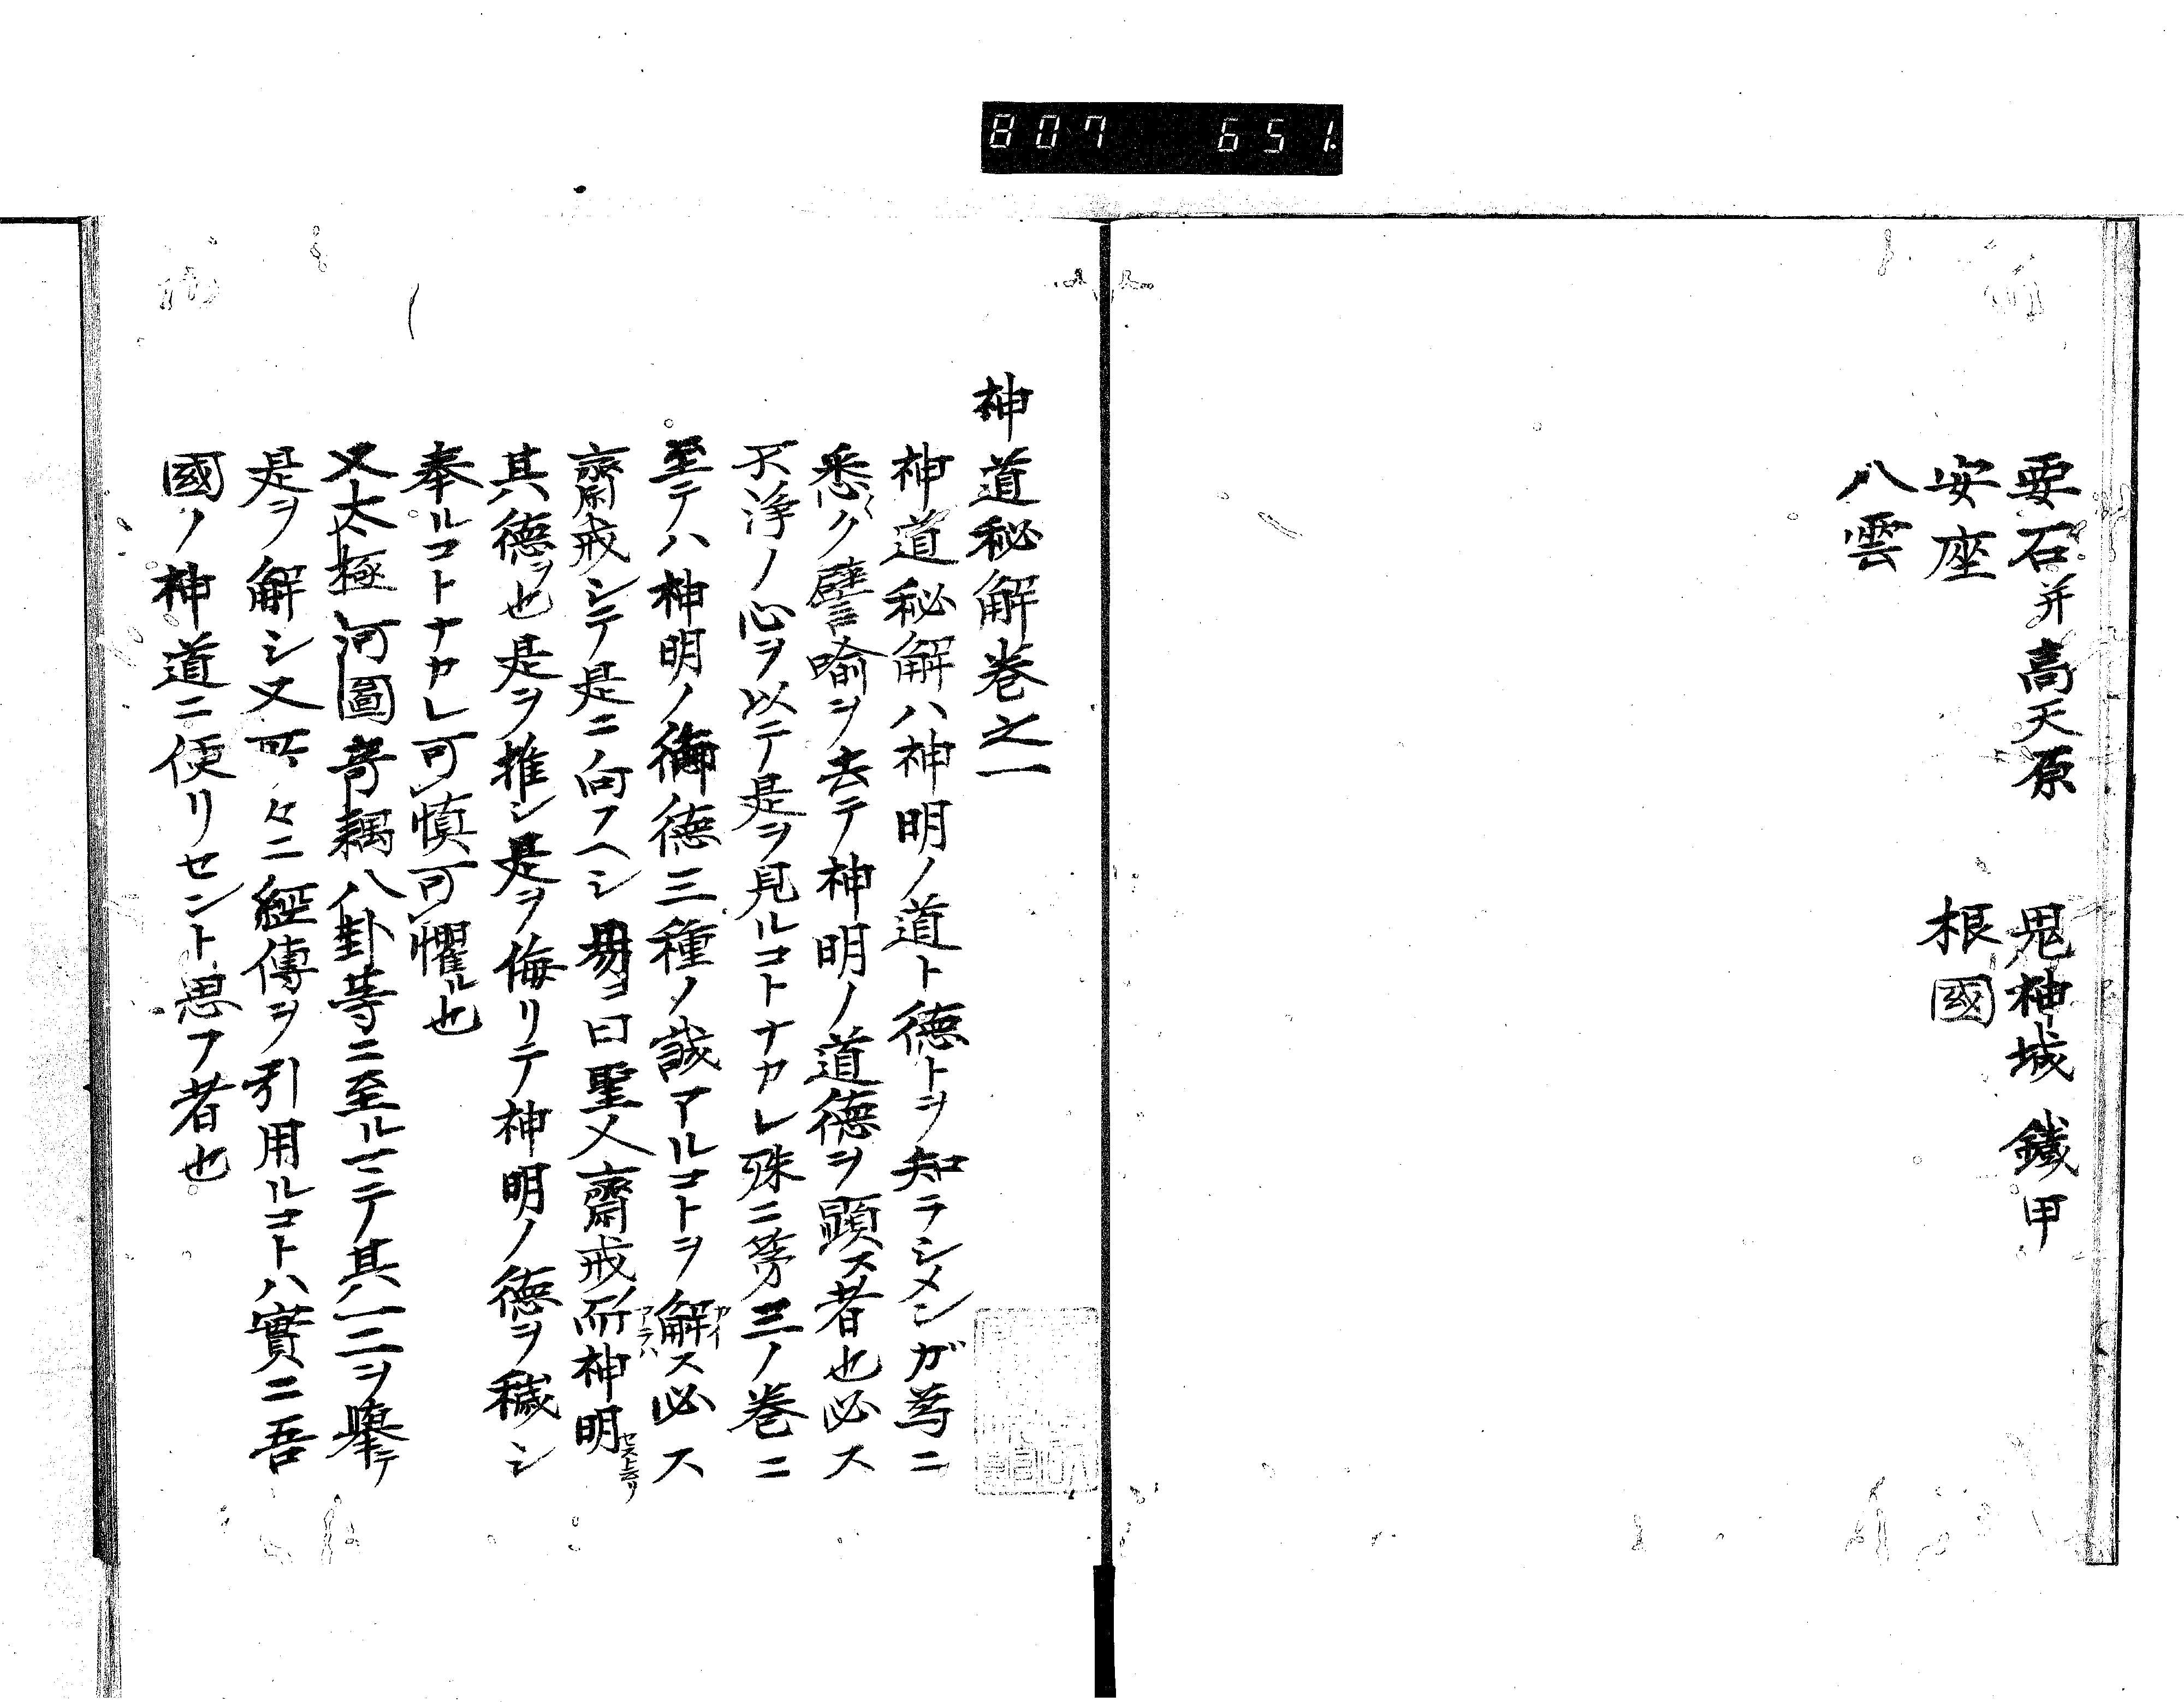 807 651.
要石并高天原 鬼神城 鐵甲
安座 根國
八雲
神道秘解巻之一
神道秘解ハ神明ノ道ト德トヲ知ラシメンガ為ニ
悉ク譬喩ヲ去テ神明ノ道德ヲ顕ス者也必ス
不淨ノ心ヲ以テ是ヲ見ルコトナカレ殊ニ第三ノ巻ニ
至テハ神明ノ御德三種ノ誠アルコトヲ解カイス必ス
齋戒シテ是ニ向フヘシ易ニ曰聖人齋戒所神明アラハセストモリ
其德ヲ也是ヲ推シ是ヲ侮リテ神明ノ德ヲ穢シ
奉ルコトナカレ可慎可懼ル也
又太極河圖竒耦八卦等ニ至ルニテ其一二ヲ舉テ
是ヲ解シ又所々ニ經傳ヲ引用ルコトハ實ニ吾
國ノ神道ニ便リセント思フ者也